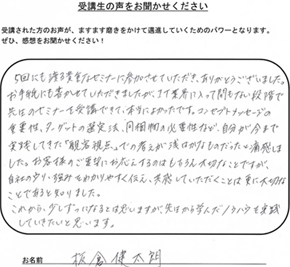 受講生の声をお聞かせください
受講された方のお声が、ますます磨きをかけて邁進していくためのパワーとなります。
ぜひ、感想をお聞かせください！
5回にも渡る貴重なセミナーに参加させていただき、ありがとうございました。
お手紙にも書かせていただきましたが、まだ業界に入って間もない段階で
先生のセミナーを受講できて、本当によかったです。コンセプトメッセージの
重要性、ターゲットの選定法、同梱物の必要性など、自分が今まで
実践してきた「観客視点」での考えが浅はかなものだったと痛感し
ました。お客様のご要望にお応えするのはもちろん大切なことですが、
自社のウリ・強みをわかりやすく伝え、共感していただくことは更に大切な
ことであると知りました。
これから、少しずつになるとは思いますが、先生から学んだノウハウを実践
していきたいと思います。
お名前 板倉健太朗